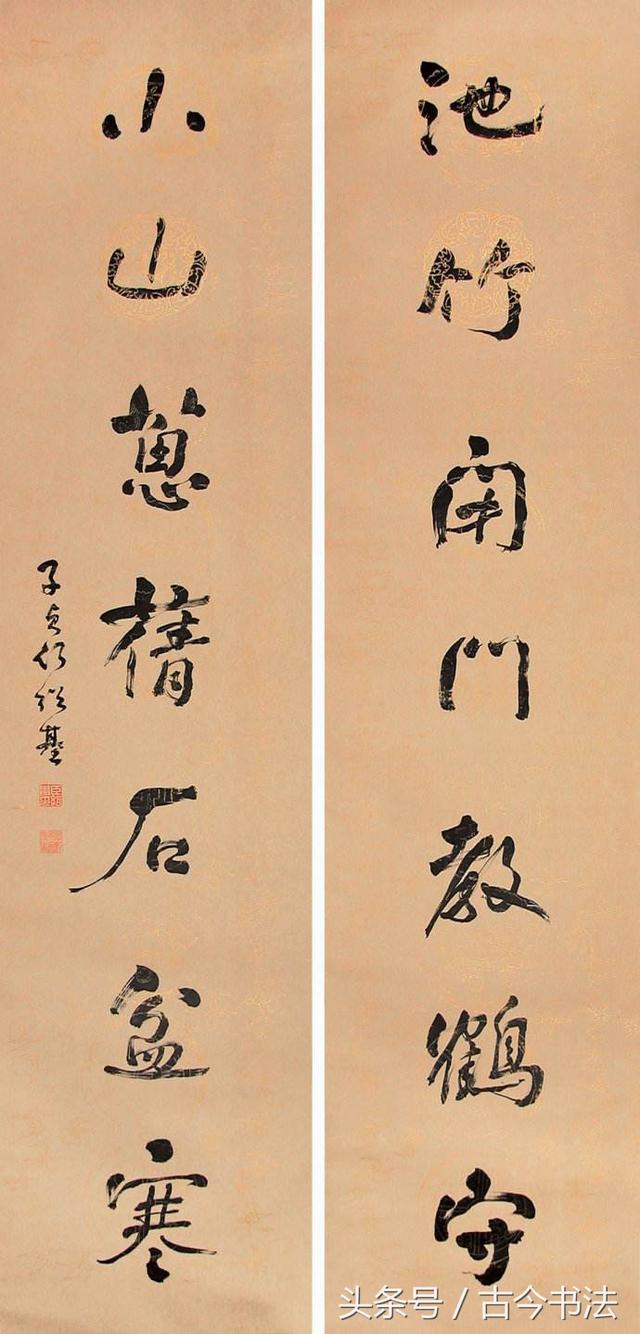 池竹閉門教鶴守
小山蔥蒨石盆寒
子貞何紹基
头条号 / 古今书法